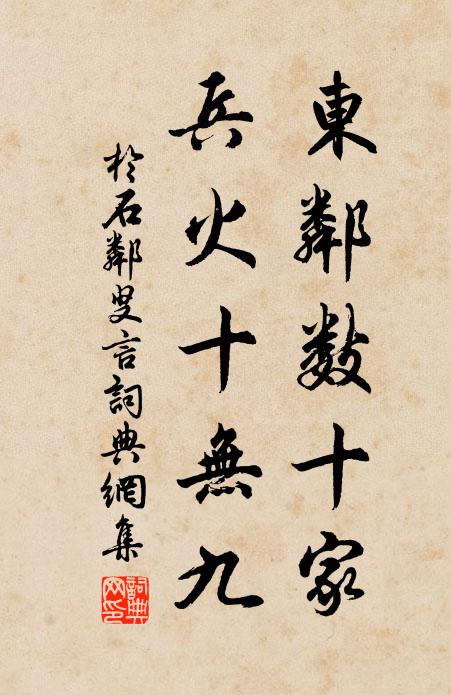 東鄰數十家
兵火十無九
於石鄰叟言詞典網集
詞典
網印